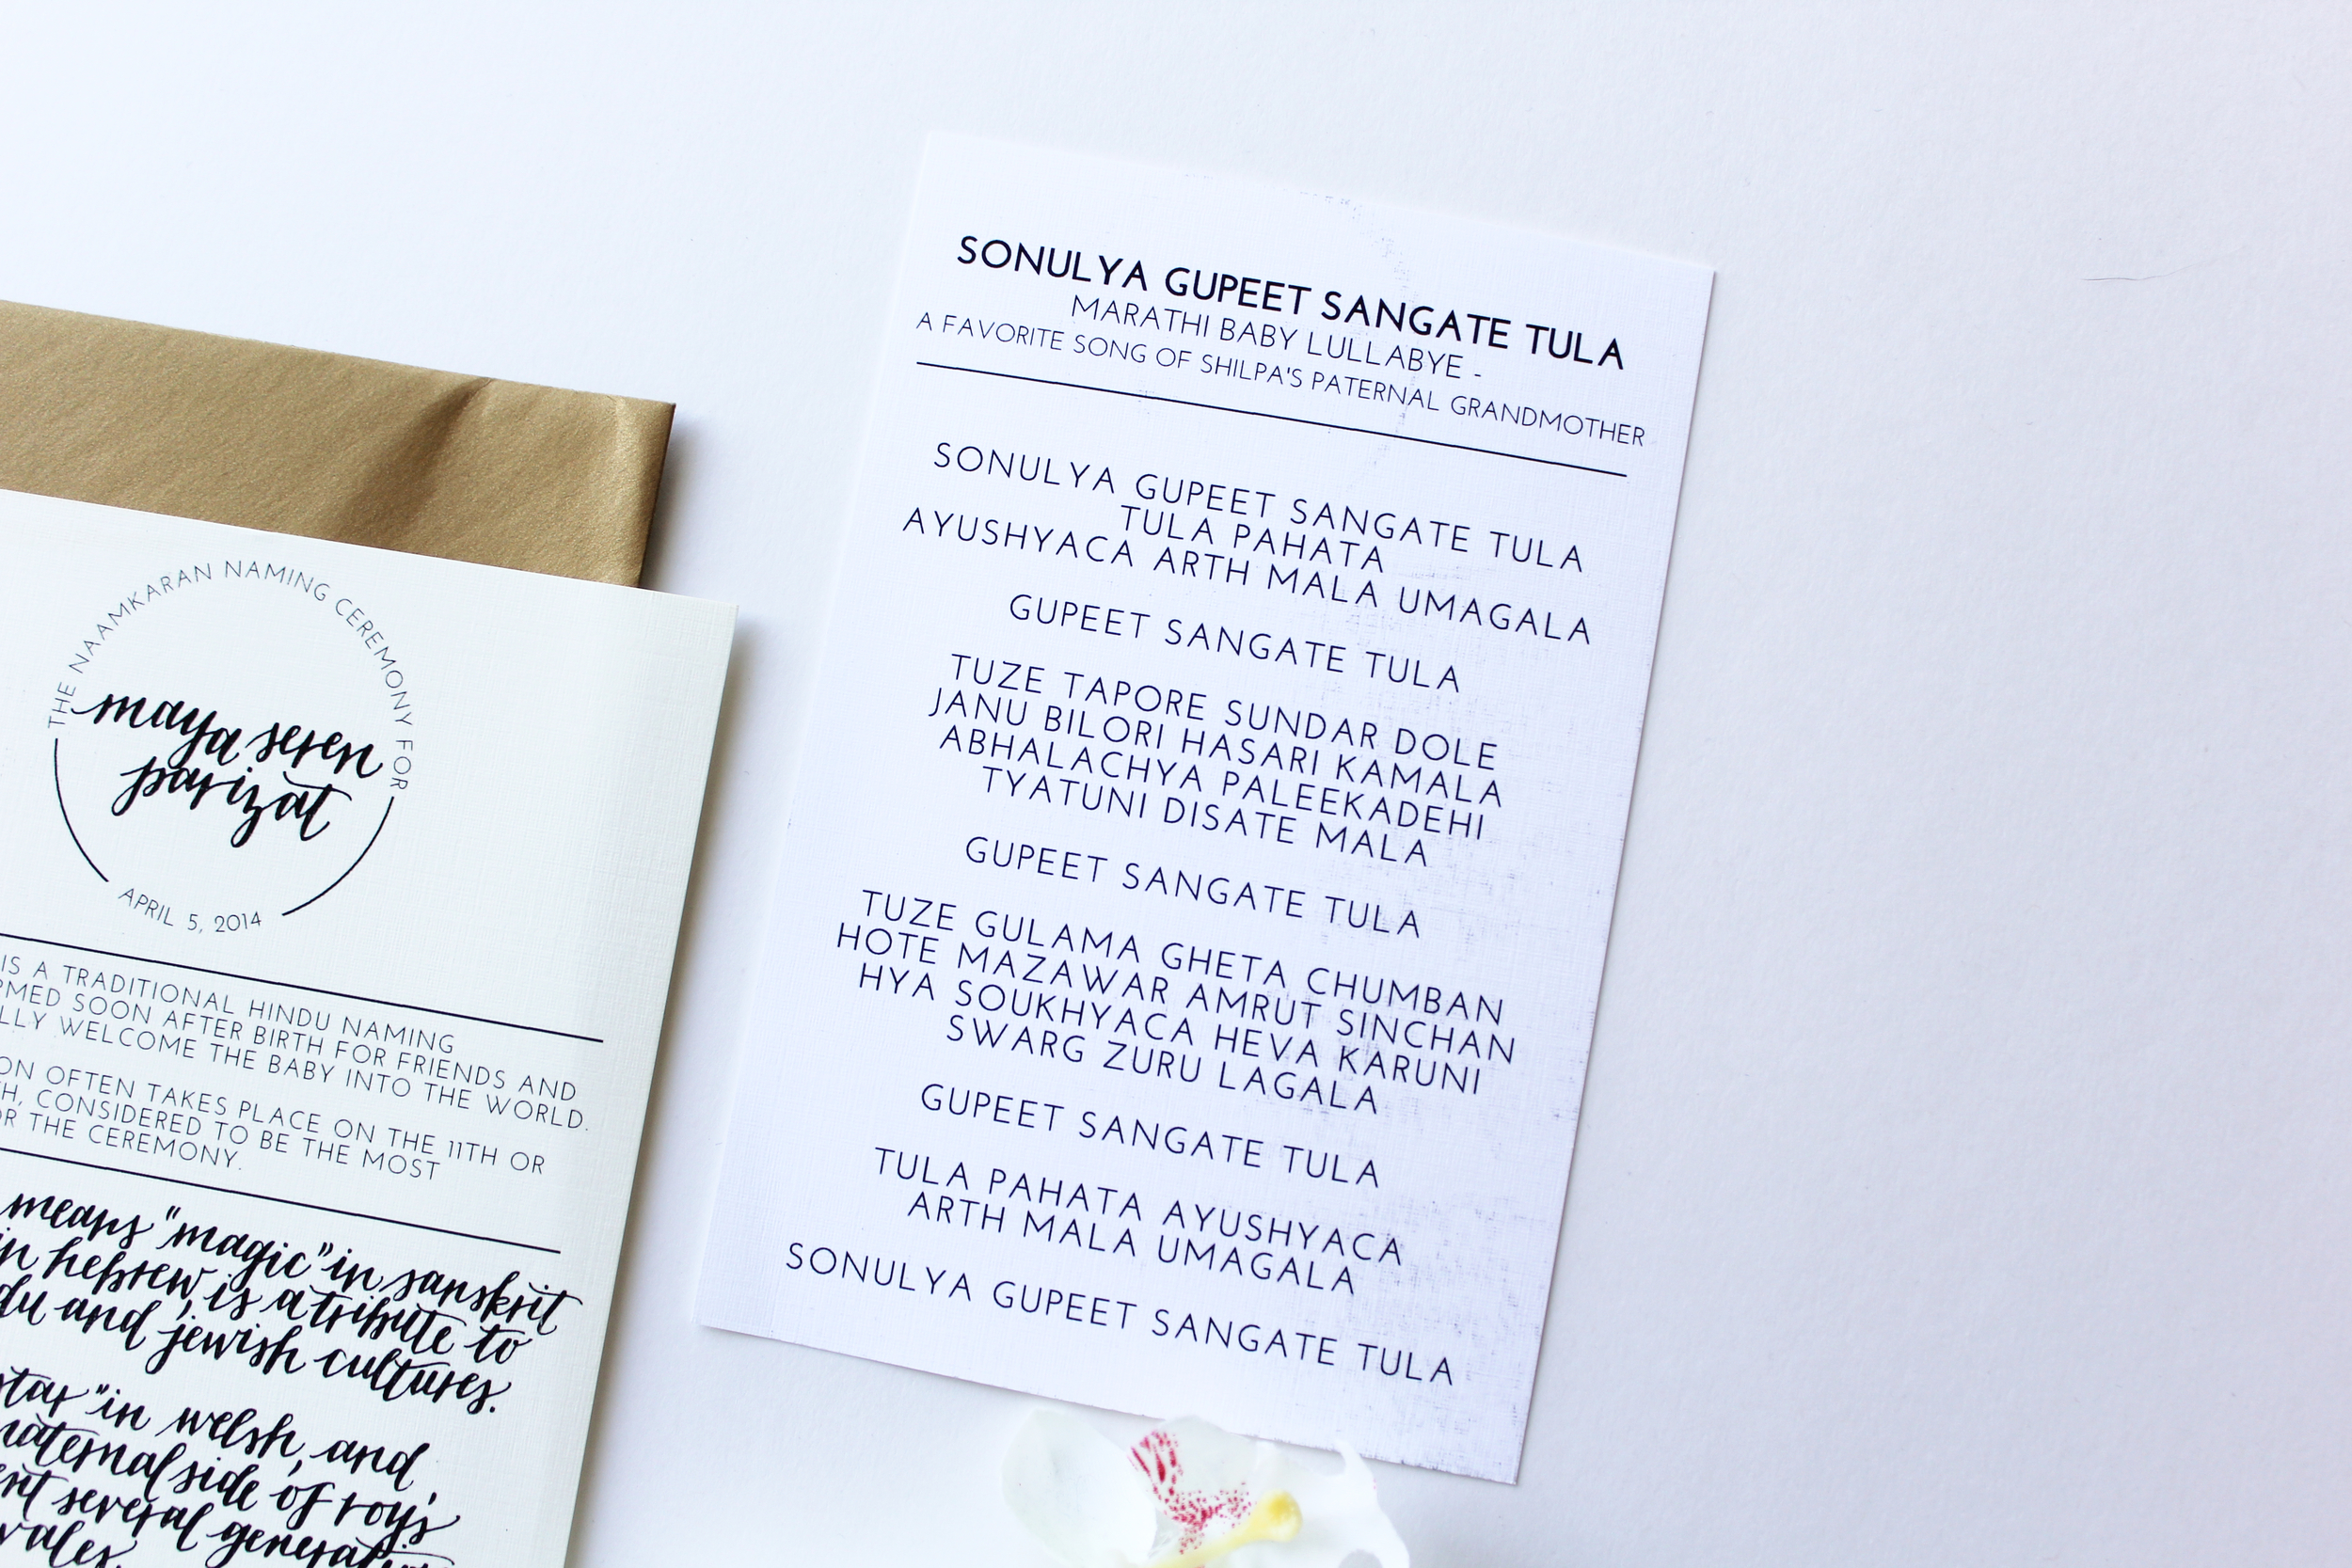 THE NAAMKARAN NAMING CEREMONY FOR
maya seren
parizat
APRIL 5, 2014
IS A TRADITIONAL HINDU NAMING
SOON AFTER BIRTH FOR FRIENDS AND
WELCOME THE BABY INTO THE WORLD.
OFTEN TAKES PLACE ON THE 11TH OR
CONSIDERED TO BE THE MOST
THE CEREMONY.
means "magic" in sanskrit
in hebrew, is a tribute to
and jewish cultures.
in welsh, and
side of roy's
several
SONULYA GUPEET SANGATE TULA
MARATHI BABY LULLABYE -
A FAVORITE SONG OF SHILPA'S PATERNAL GRANDMOTHER
SONULYA GUPEET SANGATE TULA
TULA PAHATA
AYUSHYACA ARTH MALA UMAGALA
GUPEET SANGATE TULA
TUZE TAPORE SUNDAR DOLE
JANU BILORI HASARI KAMALA
ABHALACHYA PALEEKADEHI
TYATUNI DISATE MALA
GUPEET SANGATE TULA
TUZE GULAMA GHETA CHUMBAN
HOTE MAZAWAR AMRUT SINCHAN
HYA SOUKHYACA HEVA KARUNI
SWARG ZURU LAGALA
GUPEET SANGATE TULA
TULA PAHATA AYUSHYACA
ARTH MALA UMAGALA
SONULYA GUPEET SANGATE TULA